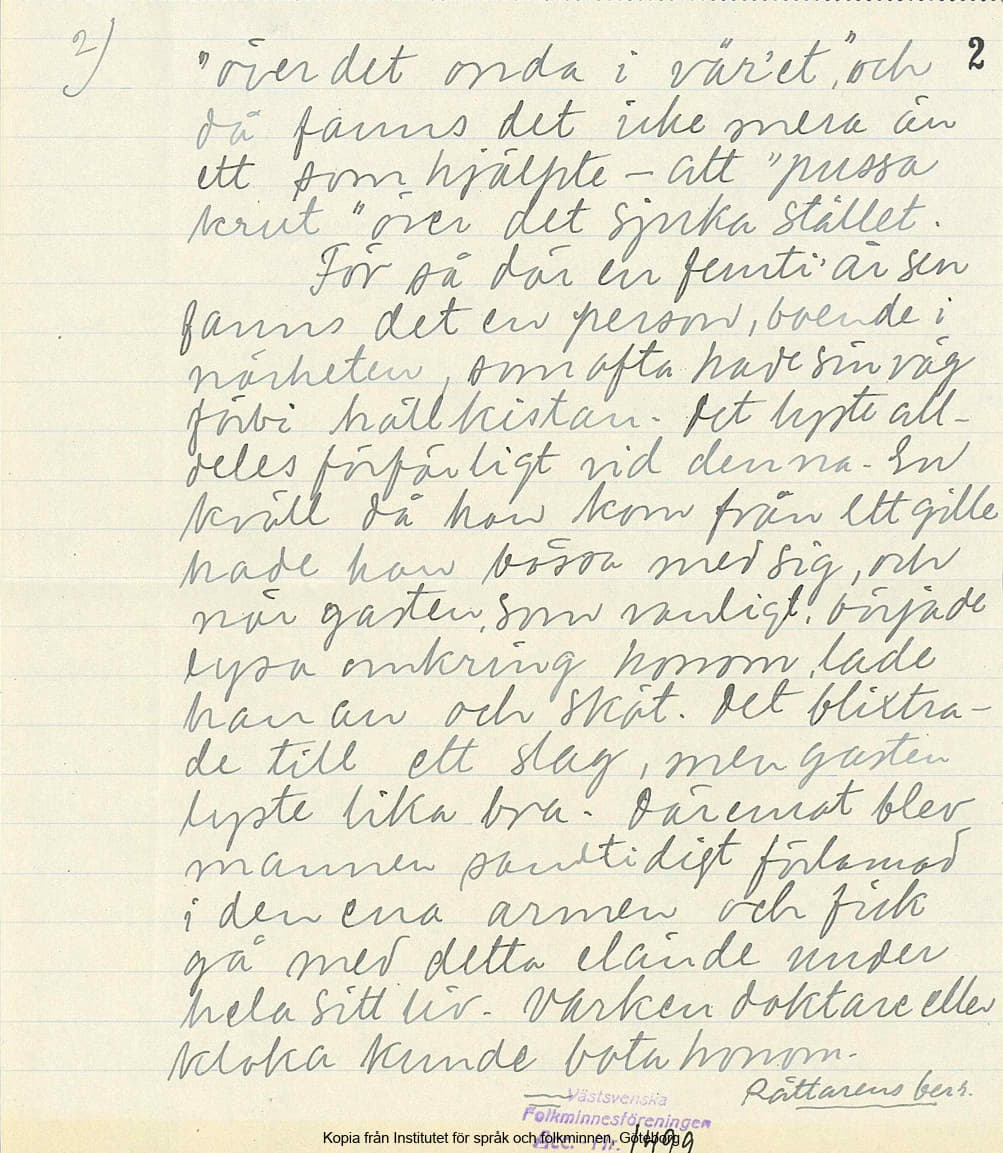 2)
2
"över det onda i vär'et", och
då fanns det icke mera än
ett som hjälpte – att "pussa
krut" över det sjuka stället.
För så där en femti' år sen
fanns det en person, boende i
närheten, som ofta hade sin väg
förbi hällkistan. Det lyste all-
deles förfärligt vid denna. En
kväll då han kom från ett gille
hade han bössa med sig, och
när gasten, som vanligt, började
lysa omkring honom, lade
han an och sköt. Det blixtra-
de till ett slag, men gasten
lyste lika bra. Däremot blev
mannen samtidigt förlamad
i den ena armen och fick
gå med detta elände under
hela sitt liv. Varken doktare eller
kloka kunde bota honom.
Rättarens ber.
Västsvenska
Folkminnesföreningen
Acc. nr. 1499
Kopia från Institutet för språk och folkminnen, Göteborg